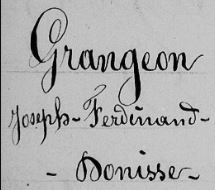 Grangeon
Joseph-Ferdinand-
- Donisse-